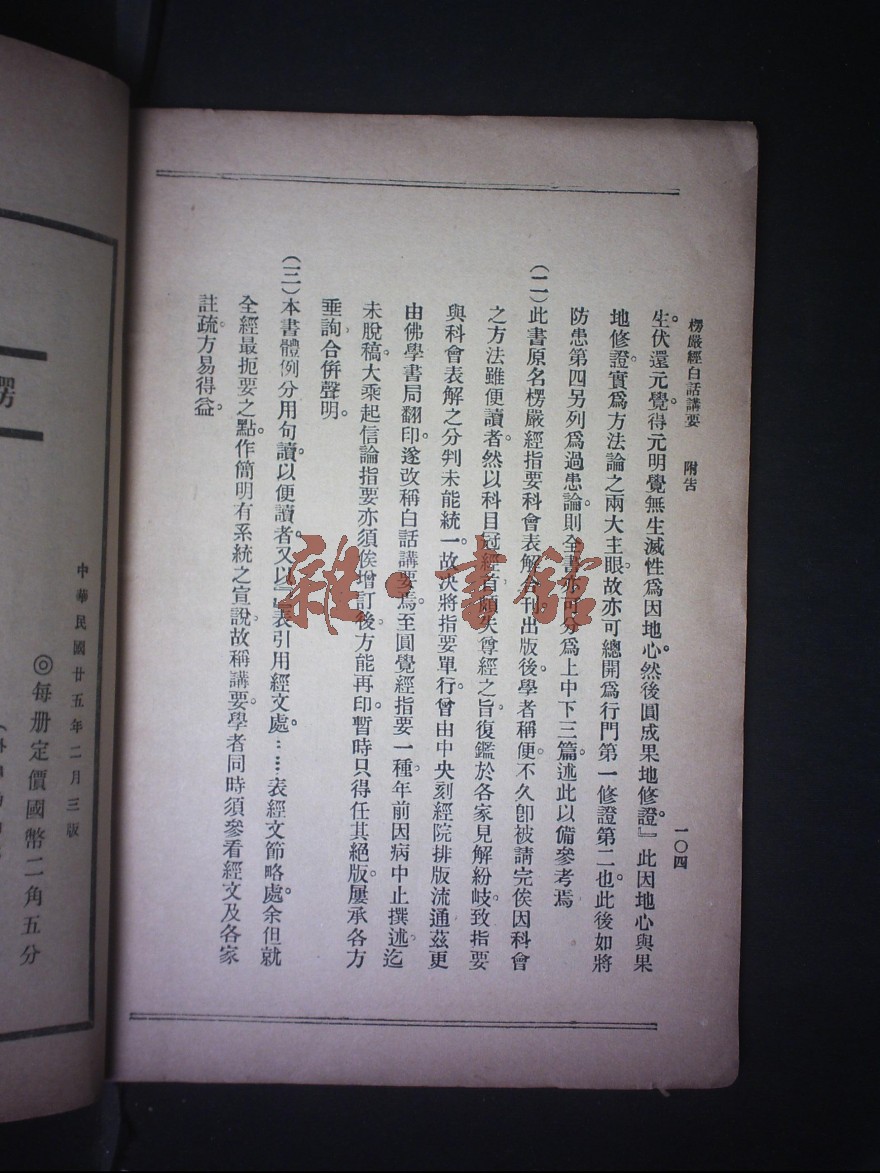 楞嚴經白話講要　附吿　一〇四
生。伏還元覺。得元明覺無生滅性爲因地心。然後圓成果地修證。』此因地心與果
地修證。實爲方法論之兩大主眼。故亦可總開爲行門第一修證第二也。此後如將
防患第四另列爲過患論。則全書亦可分爲上中下三篇。述此以備參考焉
（二）此書原名楞嚴經指要科會表解合刊。出版後。學者稱便。不久卽被請完。俟因科會
之方法雖便讀者。然以科目冠經首。頗失尊經之旨。復鑑於各家見解紛岐。致指要
與科會表解之分判未能統一。故决將指要單行。曾由中央刻經院排版流通。茲更
由佛學書局翻印。遂改稱白話講要焉。至圓覺經指要一種。年前因病中止撰述。迄
未脫稿。大乘起信論指要亦須俟增訂後。方能再印。暫時只得任其絕版。屢承各方
垂詢。合倂聲明。
（三）本書體例分用句讀。以便讀者。又以『』表引用經文處。……表經文節略處。余但就
全經最扼要之點。作簡明有系統之宣說。故稱講要。學者同時須參看經文及各家
註疏。方易得益。
雜·書館
中華民國廿五年二月三版
◎每册定價國幣二角五分
楞